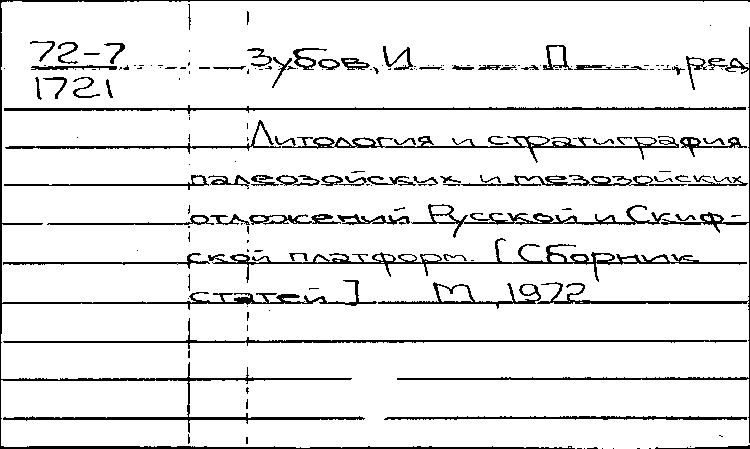 72-7 Зубов, И П , ред
1721
Литология и стратиграфия
палеозойских и мезозойских
отложений Русской и Скиф-
ской платформ. [Сборник
статей] М, 1972